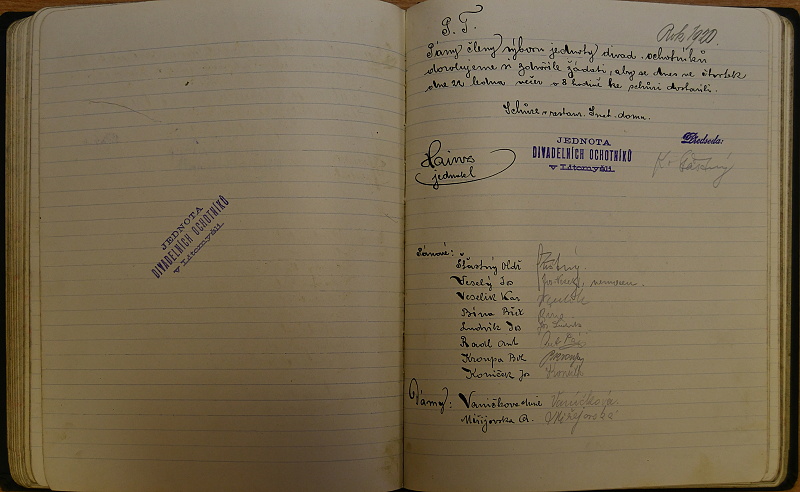 JEDNOTA
DIVADELNÍCH OCHOTNÍKŮ
v Litomyšli.
P. T.
Rok 1920.
Pány členy výboru jednoty divad. ochotníků
dovolujeme si zdvořile žádati, aby se dnes ve čtvrtek
dne 22 ledna večer o 8 hodině ke schůzi dostavili.
Schůze v restaur. Smet. domu.
jednatel
JEDNOTA
DIVADELNÍCH OCHOTNÍKŮ
v Litomyšli.
Předseda:
K. Šťastný
Pánové:
Šťastný Oldř Šťastný
Veselý Jos Jos Veselý, nemocen.
Veselík Kar Veselík
Bína Břet Bína
Ludvík Jos Jos Ludvík
Radl Ant Ant
Kroupa Boh Kroupa
Korníček Jos
Dámy: Vaníčkova Vaníčkova
A.